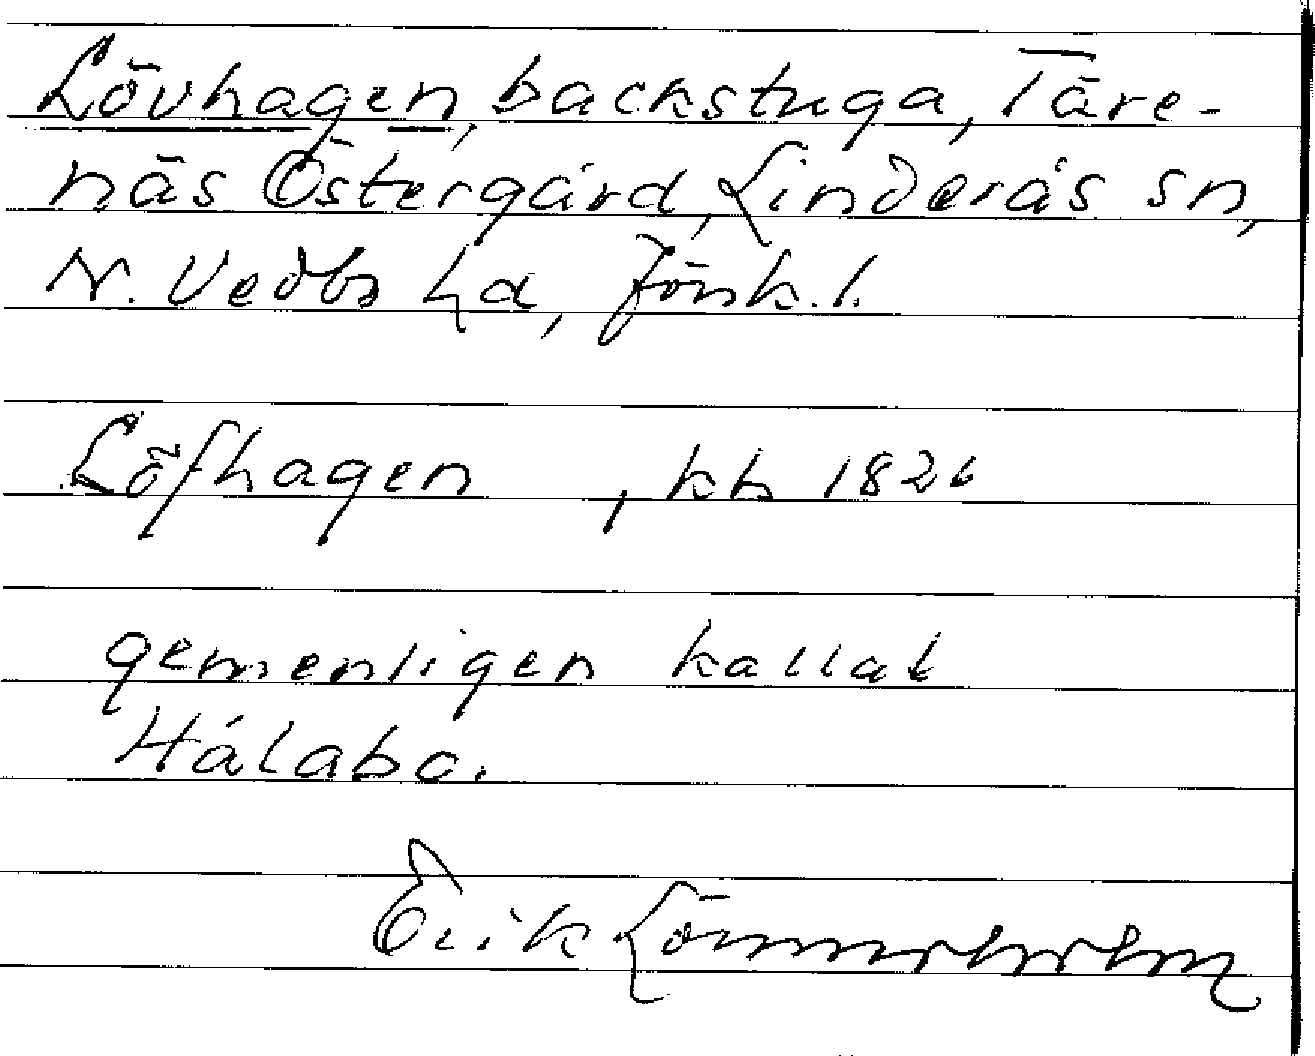 Lövhagen, backstuga, Täre-
näs Östergård, Linderås sn,
N. Vedbo hd, Jönk. l.
Löfhagen , kb 1826
gemenligen kallat
Hålabo.
Erik